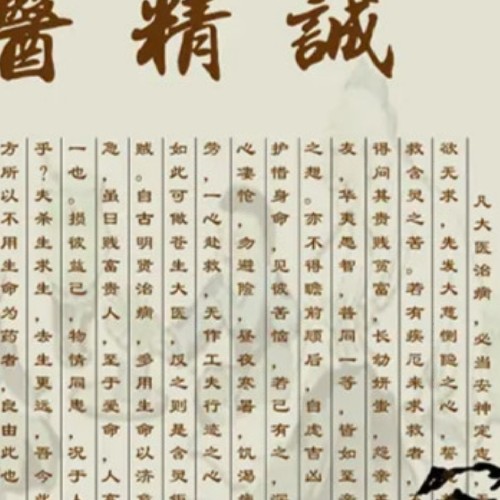 醫精誠
凡大医治病，必当安神定
欲无求，先发大慈恻隐之心，誓
救含灵之苦。若有疾厄来求救者，
得问其贵贱贫富，长幼妍蚩，怨亲
友，华夷愚智，普同一等，皆如至
之想。亦不得瞻前顾后，自虑吉凶
护惜身命，见彼苦恼，若己有之，深
心凄怆，勿避险，昼夜寒暑，饥渴
劳，一心赴救，无作工夫行迹之心
如此可做苍生大医，反之则是含灵
贼。自古明贤治病，多用生命以济
急，虽曰贱富贵人，至于爱命，人
一也。损彼益己，物情同患，况于人
乎？夫杀生求生，去生更远，吾今此
方所以不用生命为药者，良由此也